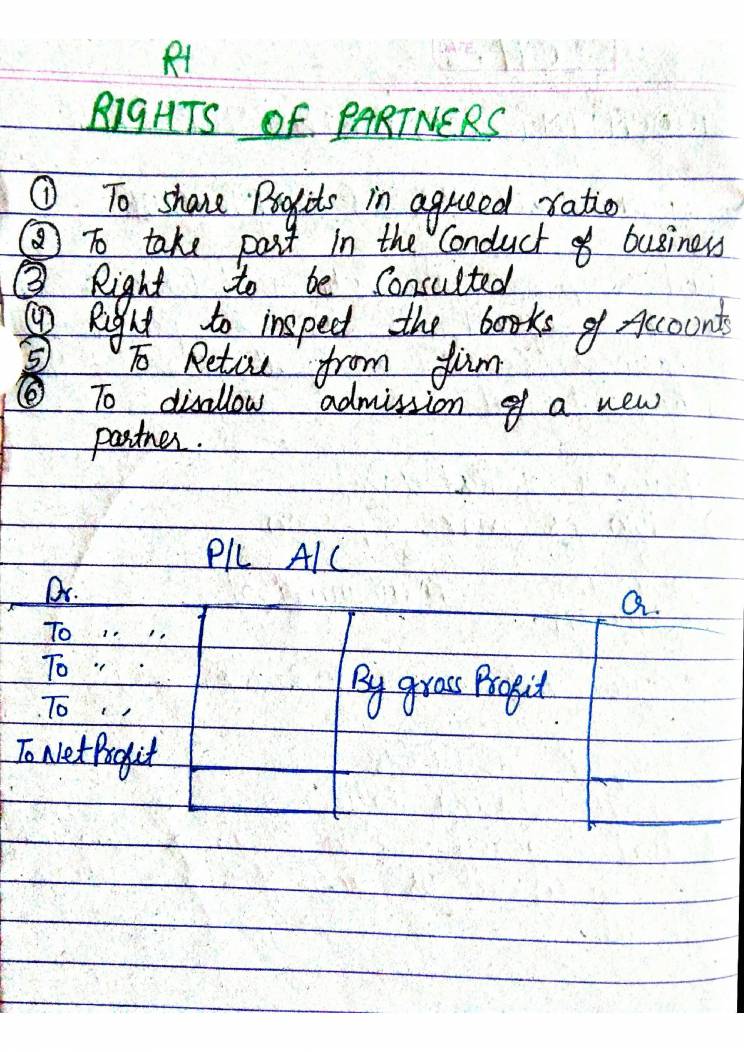 RI
RIGHTS OF PARTNERS
① To share Profits in agreed ratio
② To take part in the Conduct of business
③ Right to be Consulted
④ Right to inspect the books of Accounts
⑤ To Retire from firm
⑥ To disallow admission of a new
partner.
P/L A/C
Dr. Cr.
To ,, ,,
To ,, .
To ,, By gross Profit
To Net Profit